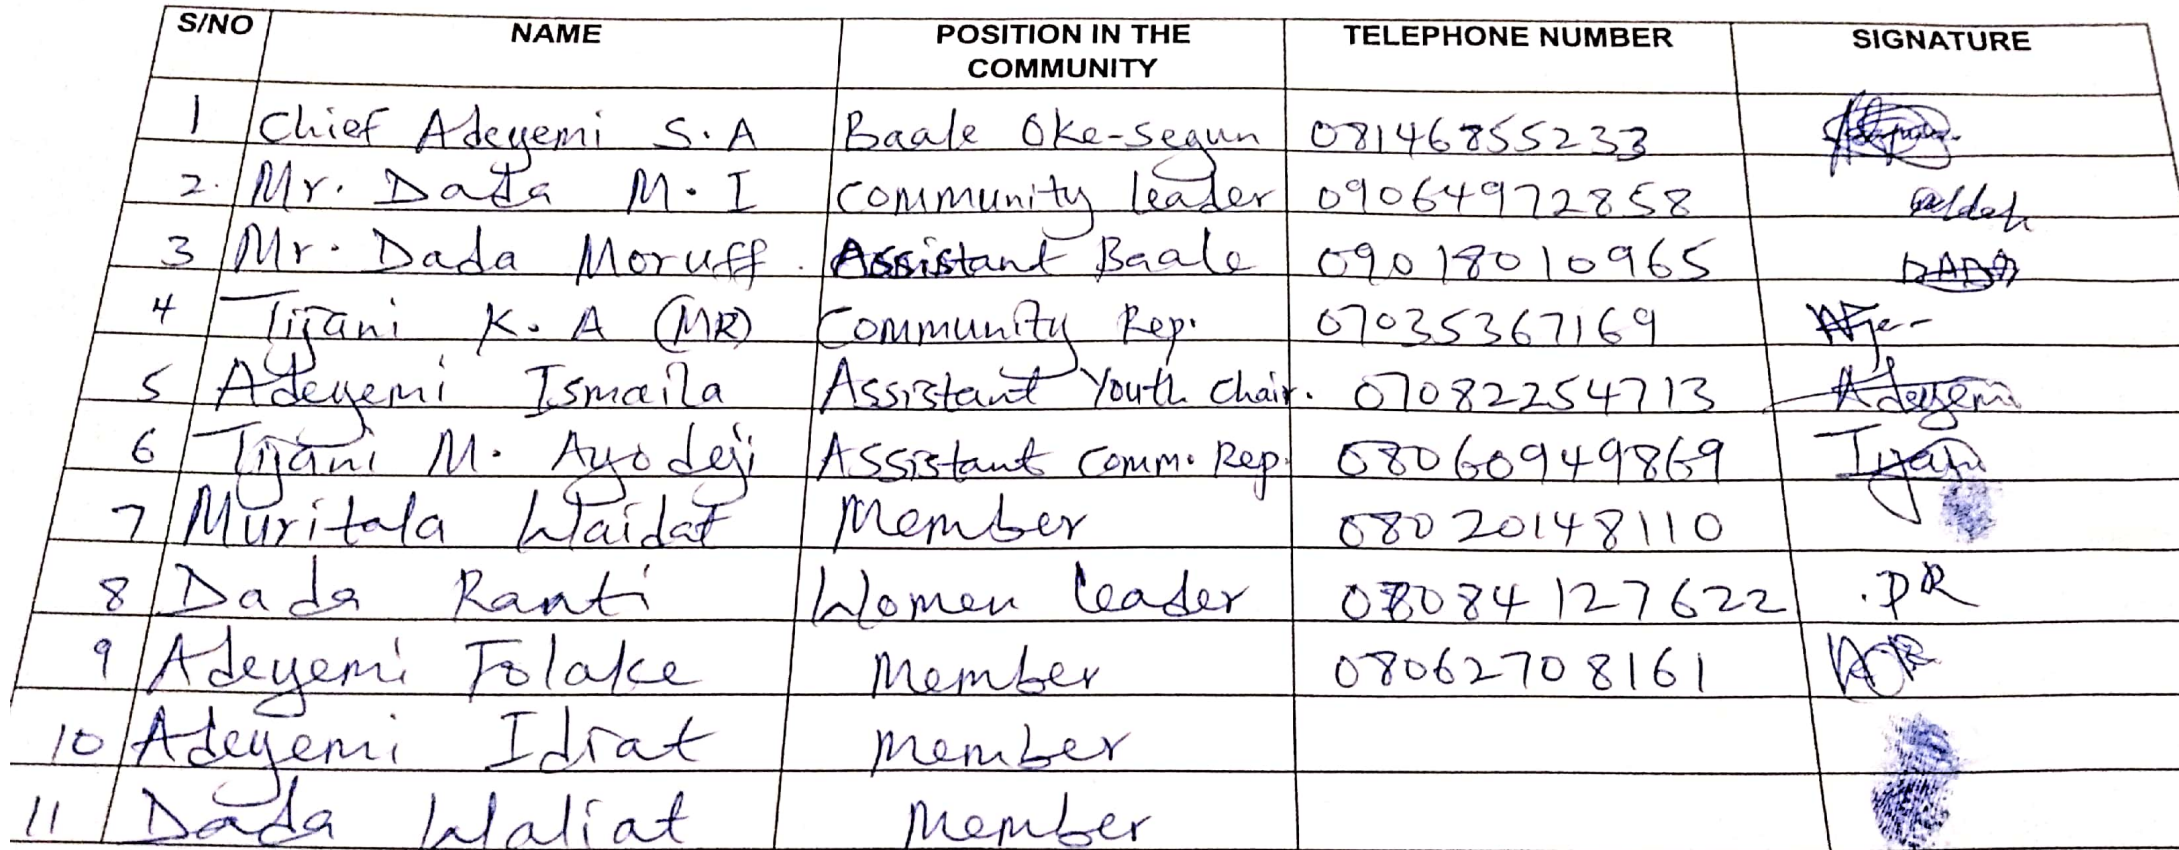 S/NO NAME POSITION IN THE COMMUNITY TELEPHONE NUMBER SIGNATURE
1 Chief Adeyemi S.A Baale Oke-Segun 08146855233
2. Mr. Dada M.I Community leader 09064972858
3 Mr. Dada Moruff. Assistant Baale 09018010965 DADA
4 Tijani K.A (MR) Community Rep. 07035367169
5 Adeyemi Ismaila Assistant Youth Chair. 07082254713 Adeyemi
6 Tijani M. Ayodeji Assistant Comm. Rep. 08060949869 Tijani
7 Muritala Waidat Member 08020148110
8 Dada Ranti Women leader 08084127622 .DR
9 Adeyemi Folake Member 08062708161
10 Adeyemi Idiat Member
11 Dada Waliat Member